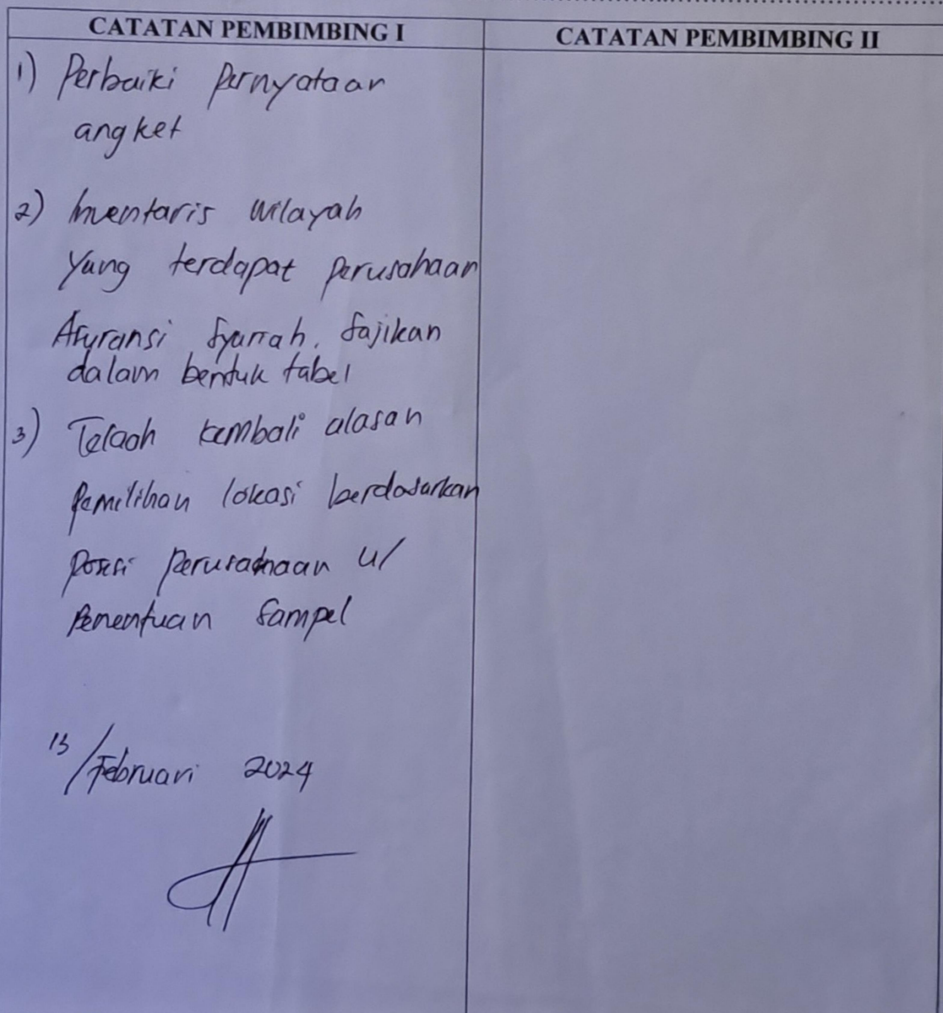 CATATAN PEMBIMBING I
CATATAN PEMBIMBING II
1) Perbaiki pernyataan
angket
2) Inventaris wilayah
yang terdapat perusahaan
Asuransi Syariah. Sajikan
dalam bentuk tabel
3) Telaah kembali alasan
pemilihan lokasi berdasarkan
perusahaan u/
penentuan sampel
13/Februari 2024